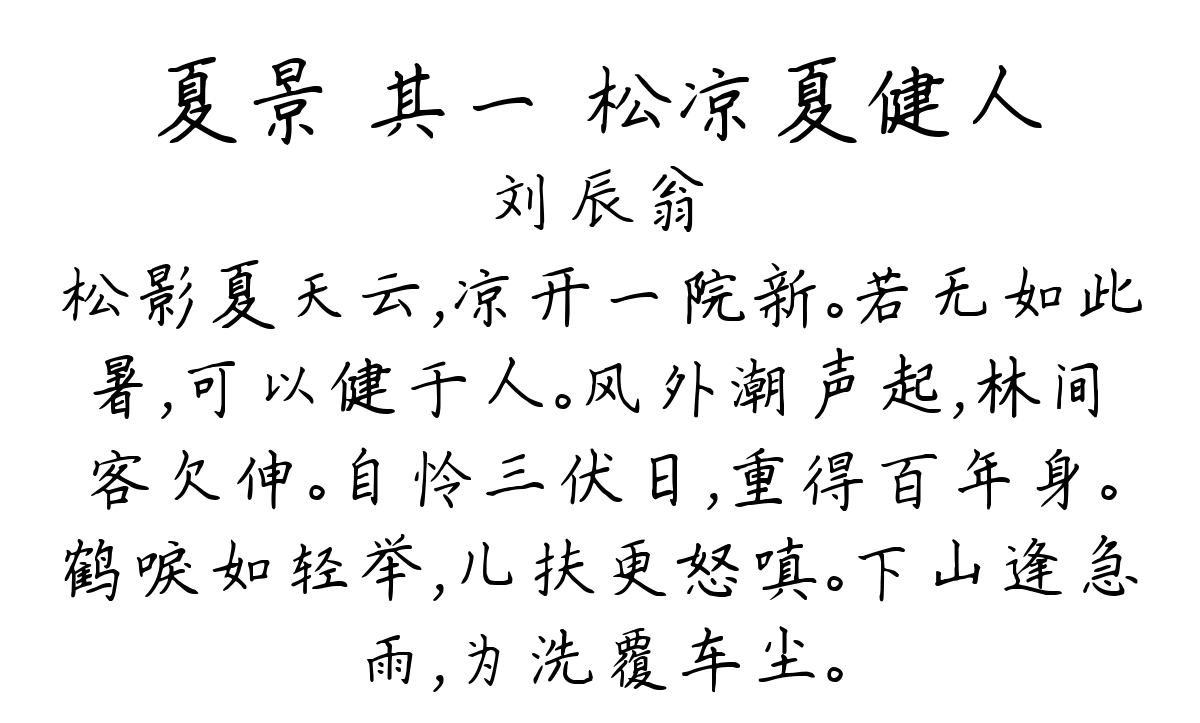 夏景 其一 松凉夏健人
刘辰翁
松影夏天云,凉开一院新。若无如此
暑,可以健于人。风外潮声起,林间
客欠伸。自怜三伏日,重得百年身。
鹤唳如轻举,儿扶更怒嗔。下山逢急
雨,为洗覆车尘。